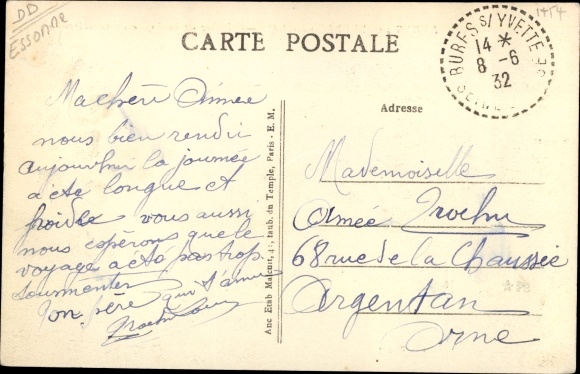 DD
ESSONNE
1454
CARTE POSTALE
BURES S/YVETTE
14 *
8 -6
32
SEINE
Adresse
Ma chère Aimée
nous bien rendu
aujourdhui la journée
a été longue et
froide vous aussi
nous espérons que le
voyage a été pas trop
tourmenter
Ton père qui t'aime
Mademoiselle
Aimée Trochu
68 rue de la Chaussée
Argentan
Orne
Anc Etab Malcuit, 41, faub. du Temple, Paris - E. M.